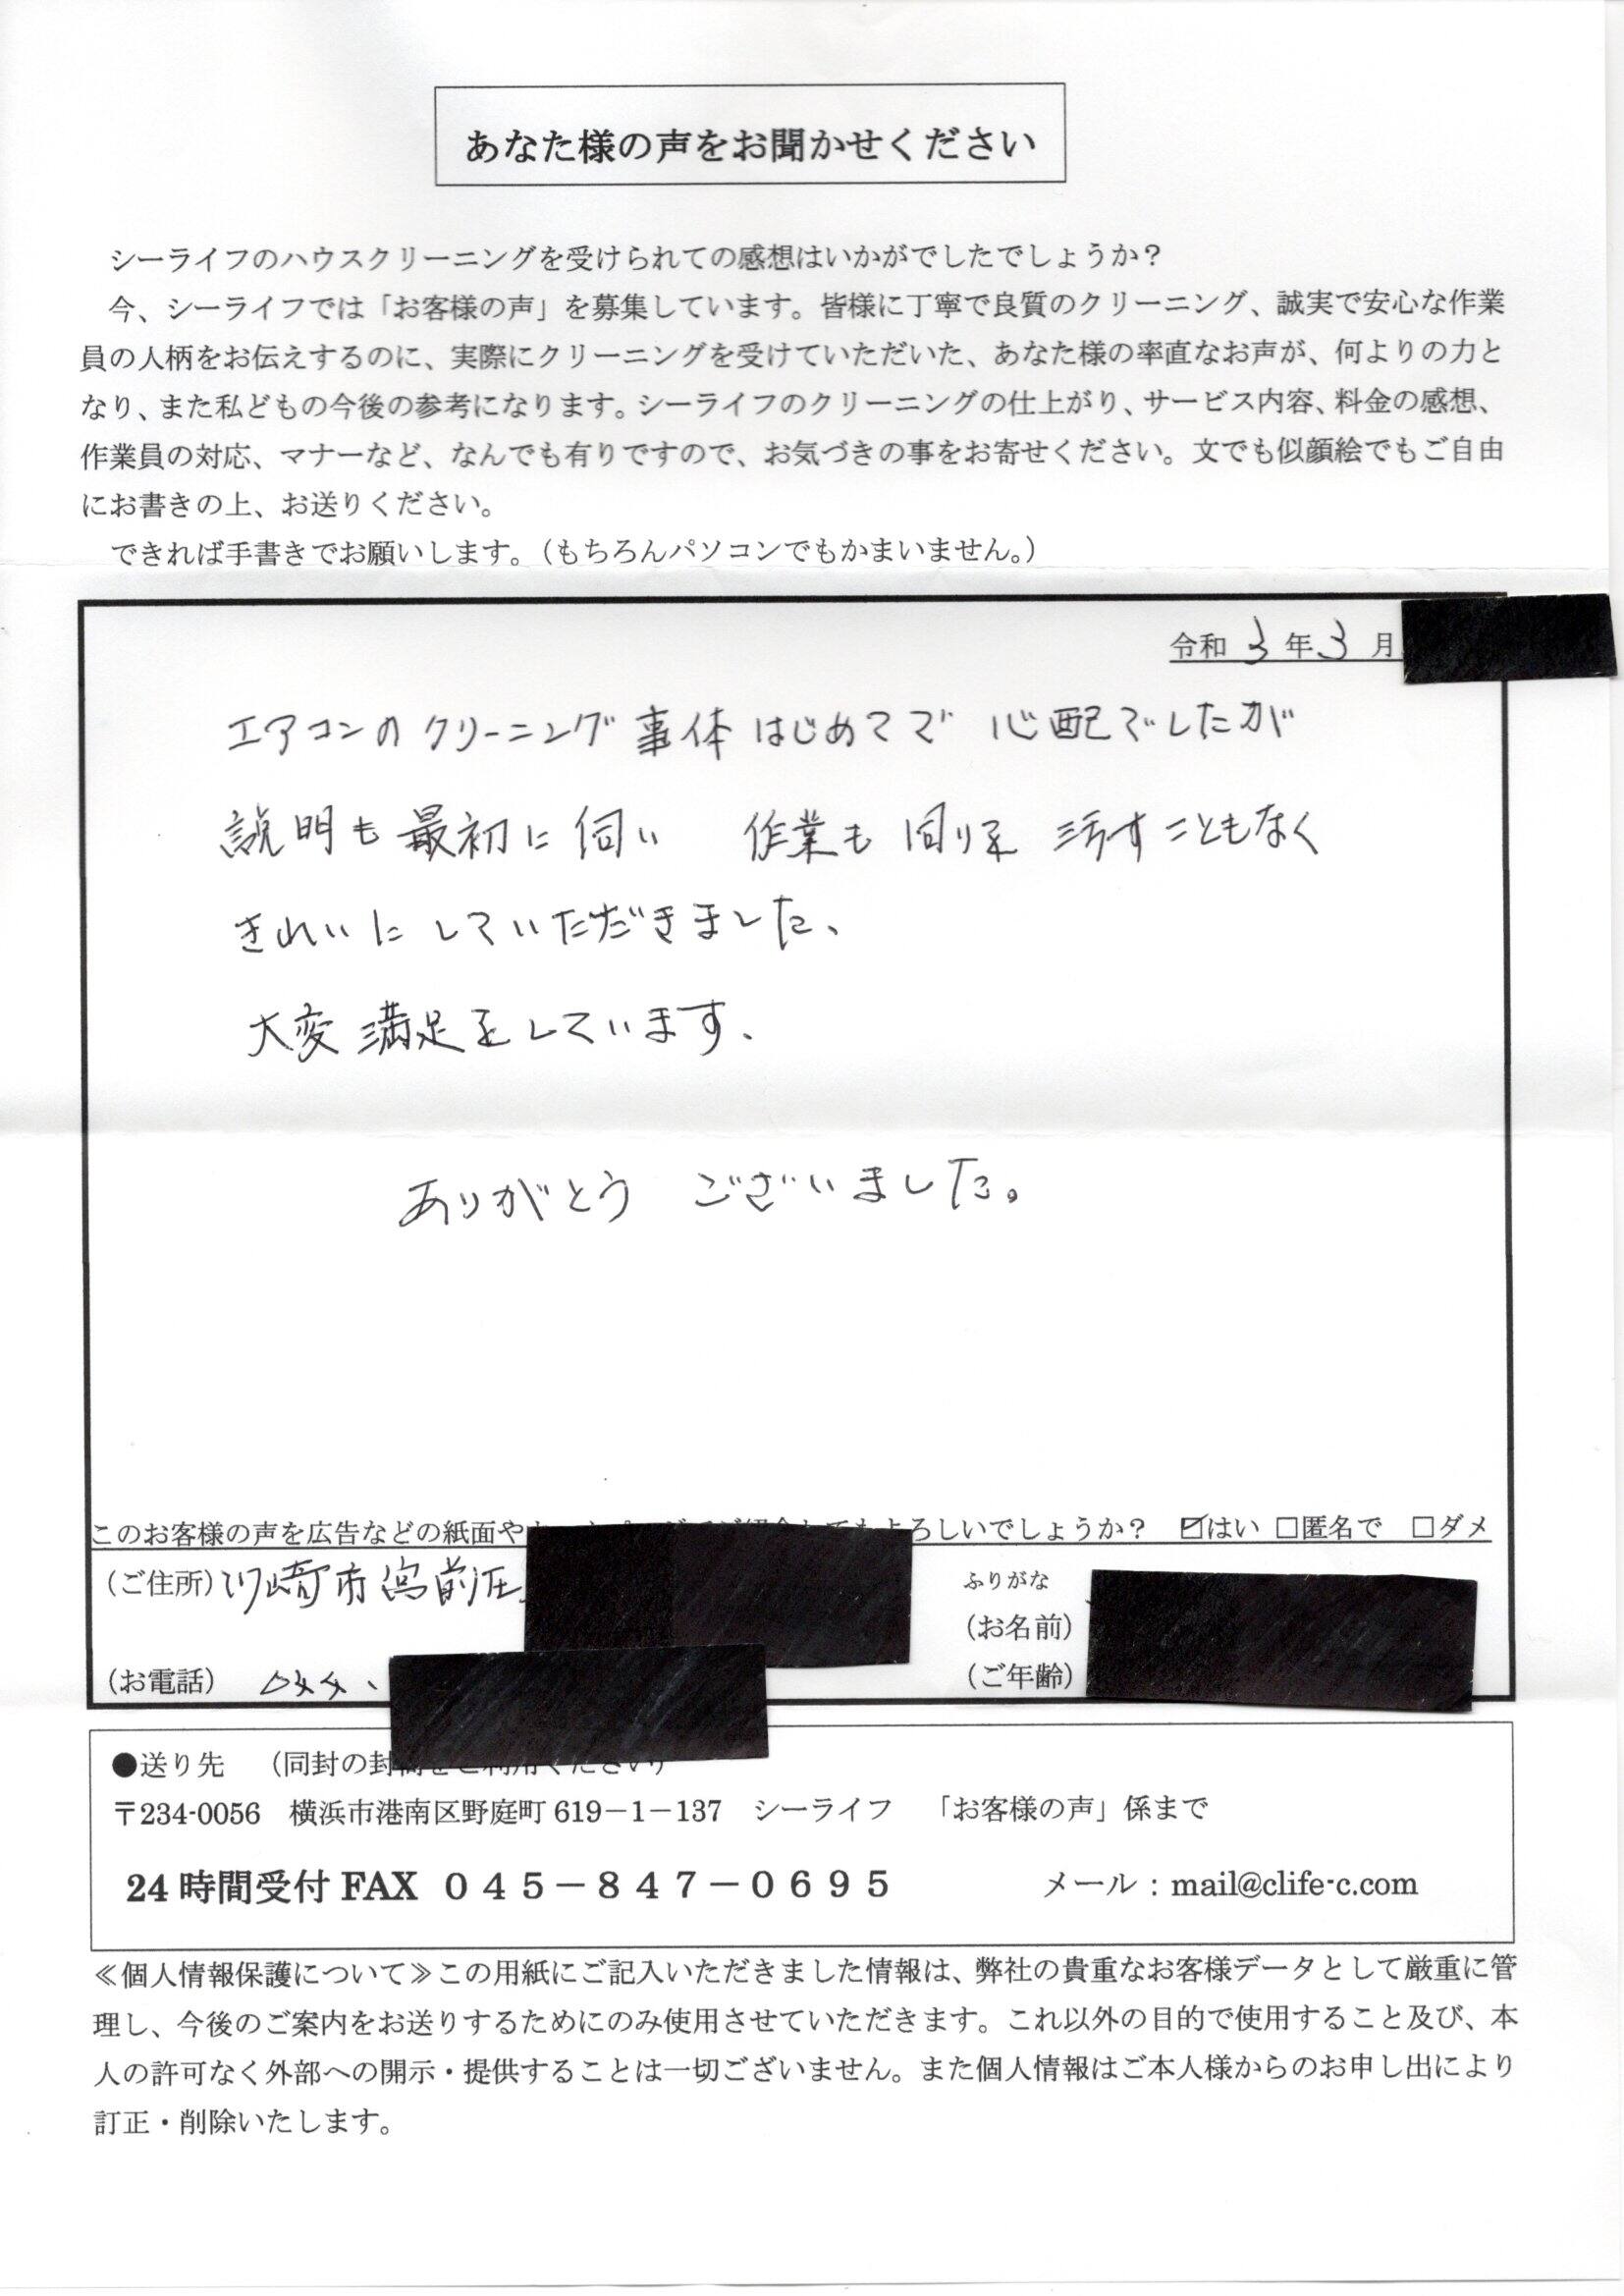 あなた様の声をお聞かせください
シーライフのハウスクリーニングを受けられての感想はいかがでしたでしょうか？
今、シーライフでは「お客様の声」を募集しています。皆様に丁寧で良質のクリーニング、誠実で安心な作業
員の人柄をお伝えするのに、実際にクリーニングを受けていただいた、あなた様の率直なお声が、何よりの力と
なり、また私どもの今後の参考になります。シーライフのクリーニングの仕上がり、サービス内容、料金の感想、
作業員の対応、マナーなど、なんでも有りですので、お気づきの事をお寄せください。文でも似顔絵でもご自由
にお書きの上、お送りください。
できれば手書きでお願いします。（もちろんパソコンでもかまいません。）
令和 3 年 3 月
エアコンのクリーニング事体はじめてで 心配でしたが
説明も最初に伺い 作業も回りを汚すこともなく
きれいにしていただきました、
大変満足をしています、
ありがとう ございました。
このお客様の声を広告などの紙面や よろしいでしょうか？ ☑はい □匿名で □ダメ
（ご住所）川崎市宮前区
ふりがな
（お名前）
（お電話） 044、
（ご年齢）
●送り先 （同封の封
〒234-0056 横浜市港南区野庭町 619－1－137 シーライフ 「お客様の声」係まで
24 時間受付 FAX ０４５－８４７－０６９５ メール：mail@clife-c.com
≪個人情報保護について≫この用紙にご記入いただきました情報は、弊社の貴重なお客様データとして厳重に管
理し、今後のご案内をお送りするためにのみ使用させていただきます。これ以外の目的で使用すること及び、本
人の許可なく外部への開示・提供することは一切ございません。また個人情報はご本人様からのお申し出により
訂正・削除いたします。